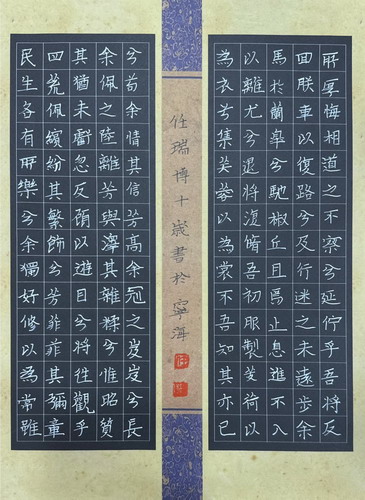 所厚悔相道之不察兮延佇乎吾將反
回朕車以復路兮及行迷之未遠步余
馬於蘭皋兮馳椒丘且焉止息進不入
以離尤兮退將復脩吾初服製芰荷以
為衣兮集芙蓉以為裳不吾知其亦已
任瑞博十歲書於寧海
兮苟余情其信芳高余冠之岌岌兮長
余佩之陸離芳與澤其雜糅兮惟昭質
其猶未虧忽反顧以遊目兮將往觀乎
四荒佩繽紛其繁飾兮芳菲菲其彌章
民生各有所樂兮余獨好修以為常雖